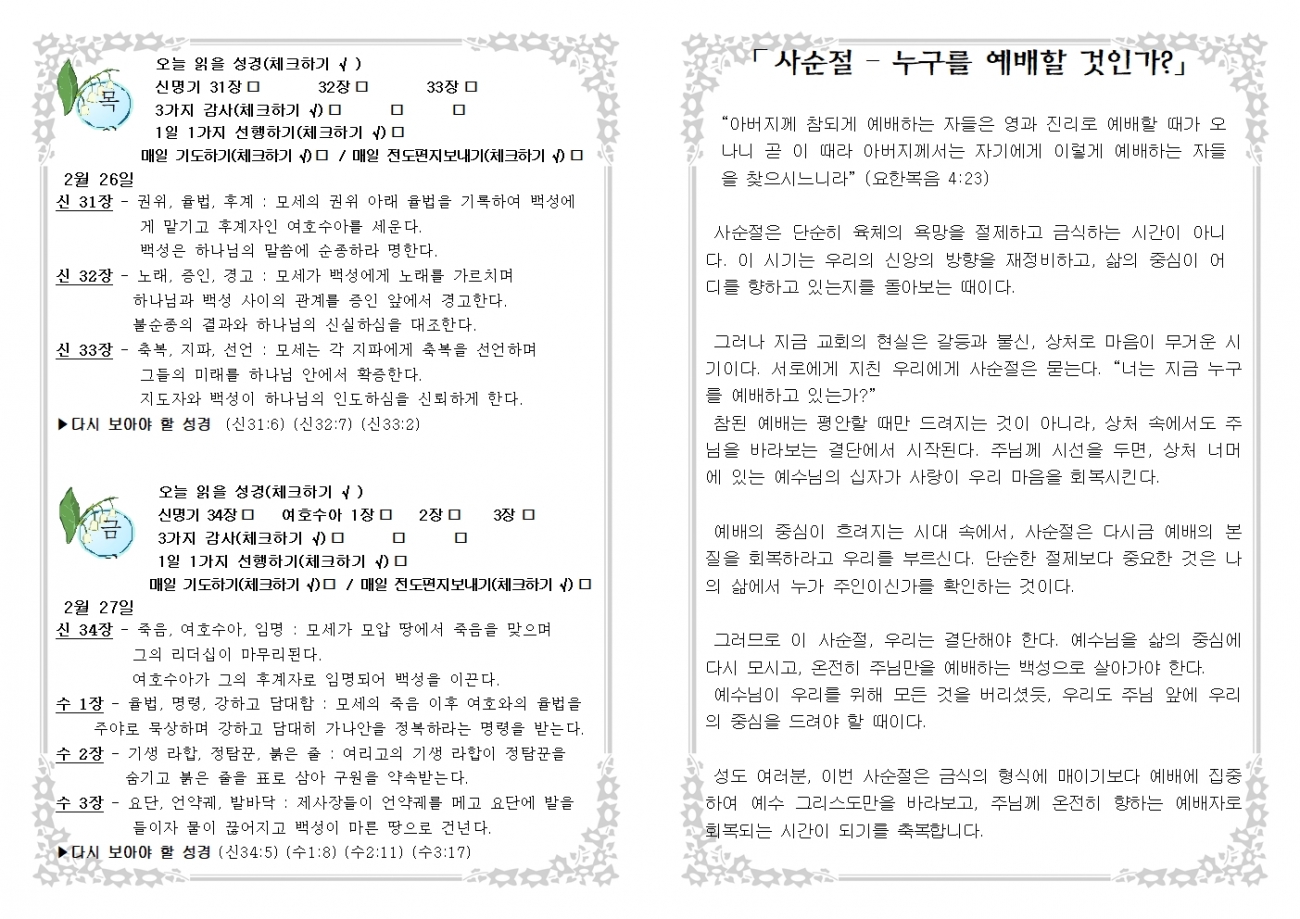 오늘 읽을 성경(체크하기 √ )
목
신명기 31장 □ 32장 □ 33장 □
3가지 감사(체크하기 √) □ □ □
1일 1가지 선행하기(체크하기 √) □
매일 기도하기(체크하기 √) □ / 매일 전도편지보내기(체크하기 √) □
2월 26일
신 31장 - 권위, 율법, 후계 : 모세의 권위 아래 율법을 기록하여 백성에
게 맡기고 후계자인 여호수아를 세운다.
백성은 하나님의 말씀에 순종하라 명한다.
신 32장 - 노래, 증인, 경고 : 모세가 백성에게 노래를 가르치며
하나님과 백성 사이의 관계를 증인 앞에서 경고한다.
불순종의 결과와 하나님의 신실하심을 대조한다.
신 33장 - 축복, 지파, 선언 : 모세는 각 지파에게 축복을 선언하며
그들의 미래를 하나님 안에서 확증한다.
지도자와 백성이 하나님의 인도하심을 신뢰하게 한다.
▶다시 보아야 할 성경 (신31:6) (신32:7) (신33:2)
오늘 읽을 성경(체크하기 √ )
금
신명기 34장 □ 여호수아 1장 □ 2장 □ 3장 □
3가지 감사(체크하기 √) □ □ □
1일 1가지 선행하기(체크하기 √) □
매일 기도하기(체크하기 √) □ / 매일 전도편지보내기(체크하기 √) □
2월 27일
신 34장 - 죽음, 여호수아, 임명 : 모세가 모압 땅에서 죽음을 맞으며
그의 리더십이 마무리된다.
여호수아가 그의 후계자로 임명되어 백성을 이끈다.
수 1장 - 율법, 명령, 강하고 담대함 : 모세의 죽음 이후 여호와의 율법을
주야로 묵상하며 강하고 담대히 가나안을 정복하라는 명령을 받는다.
수 2장 - 기생 라합, 정탐꾼, 붉은 줄 : 여리고의 기생 라합이 정탐꾼을
숨기고 붉은 줄을 표로 삼아 구원을 약속받는다.
수 3장 - 요단, 언약궤, 발바닥 : 제사장들이 언약궤를 메고 요단에 발을
들이자 물이 끊어지고 백성이 마른 땅으로 건넌다.
▶다시 보아야 할 성경 (신34:5) (수1:8) (수2:11) (수3:17)
「 사순절 - 누구를 예배할 것인가?」
“아버지께 참되게 예배하는 자들은 영과 진리로 예배할 때가 오
나니 곧 이 때라 아버지께서는 자기에게 이렇게 예배하는 자들
을 찾으시느니라” (요한복음 4:23)
사순절은 단순히 육체의 욕망을 절제하고 금식하는 시간이 아니
다. 이 시기는 우리의 신앙의 방향을 재정비하고, 삶의 중심이 어
디를 향하고 있는지를 돌아보는 때이다.
그러나 지금 교회의 현실은 갈등과 불신, 상처로 마음이 무거운 시
기이다. 서로에게 지친 우리에게 사순절은 묻는다. “너는 지금 누구
를 예배하고 있는가?”
참된 예배는 평안할 때만 드려지는 것이 아니라, 상처 속에서도 주
님을 바라보는 결단에서 시작된다. 주님께 시선을 두면, 상처 너머
에 있는 예수님의 십자가 사랑이 우리 마음을 회복시킨다.
예배의 중심이 흐려지는 시대 속에서, 사순절은 다시금 예배의 본
질을 회복하라고 우리를 부르신다. 단순한 절제보다 중요한 것은 나
의 삶에서 누가 주인이신가를 확인하는 것이다.
그러므로 이 사순절, 우리는 결단해야 한다. 예수님을 삶의 중심에
다시 모시고, 온전히 주님만을 예배하는 백성으로 살아가야 한다.
예수님이 우리를 위해 모든 것을 버리셨듯, 우리도 주님 앞에 우리
의 중심을 드려야 할 때이다.
성도 여러분, 이번 사순절은 금식의 형식에 매이기보다 예배에 집중
하여 예수 그리스도만을 바라보고, 주님께 온전히 향하는 예배자로
회복되는 시간이 되기를 축복합니다.